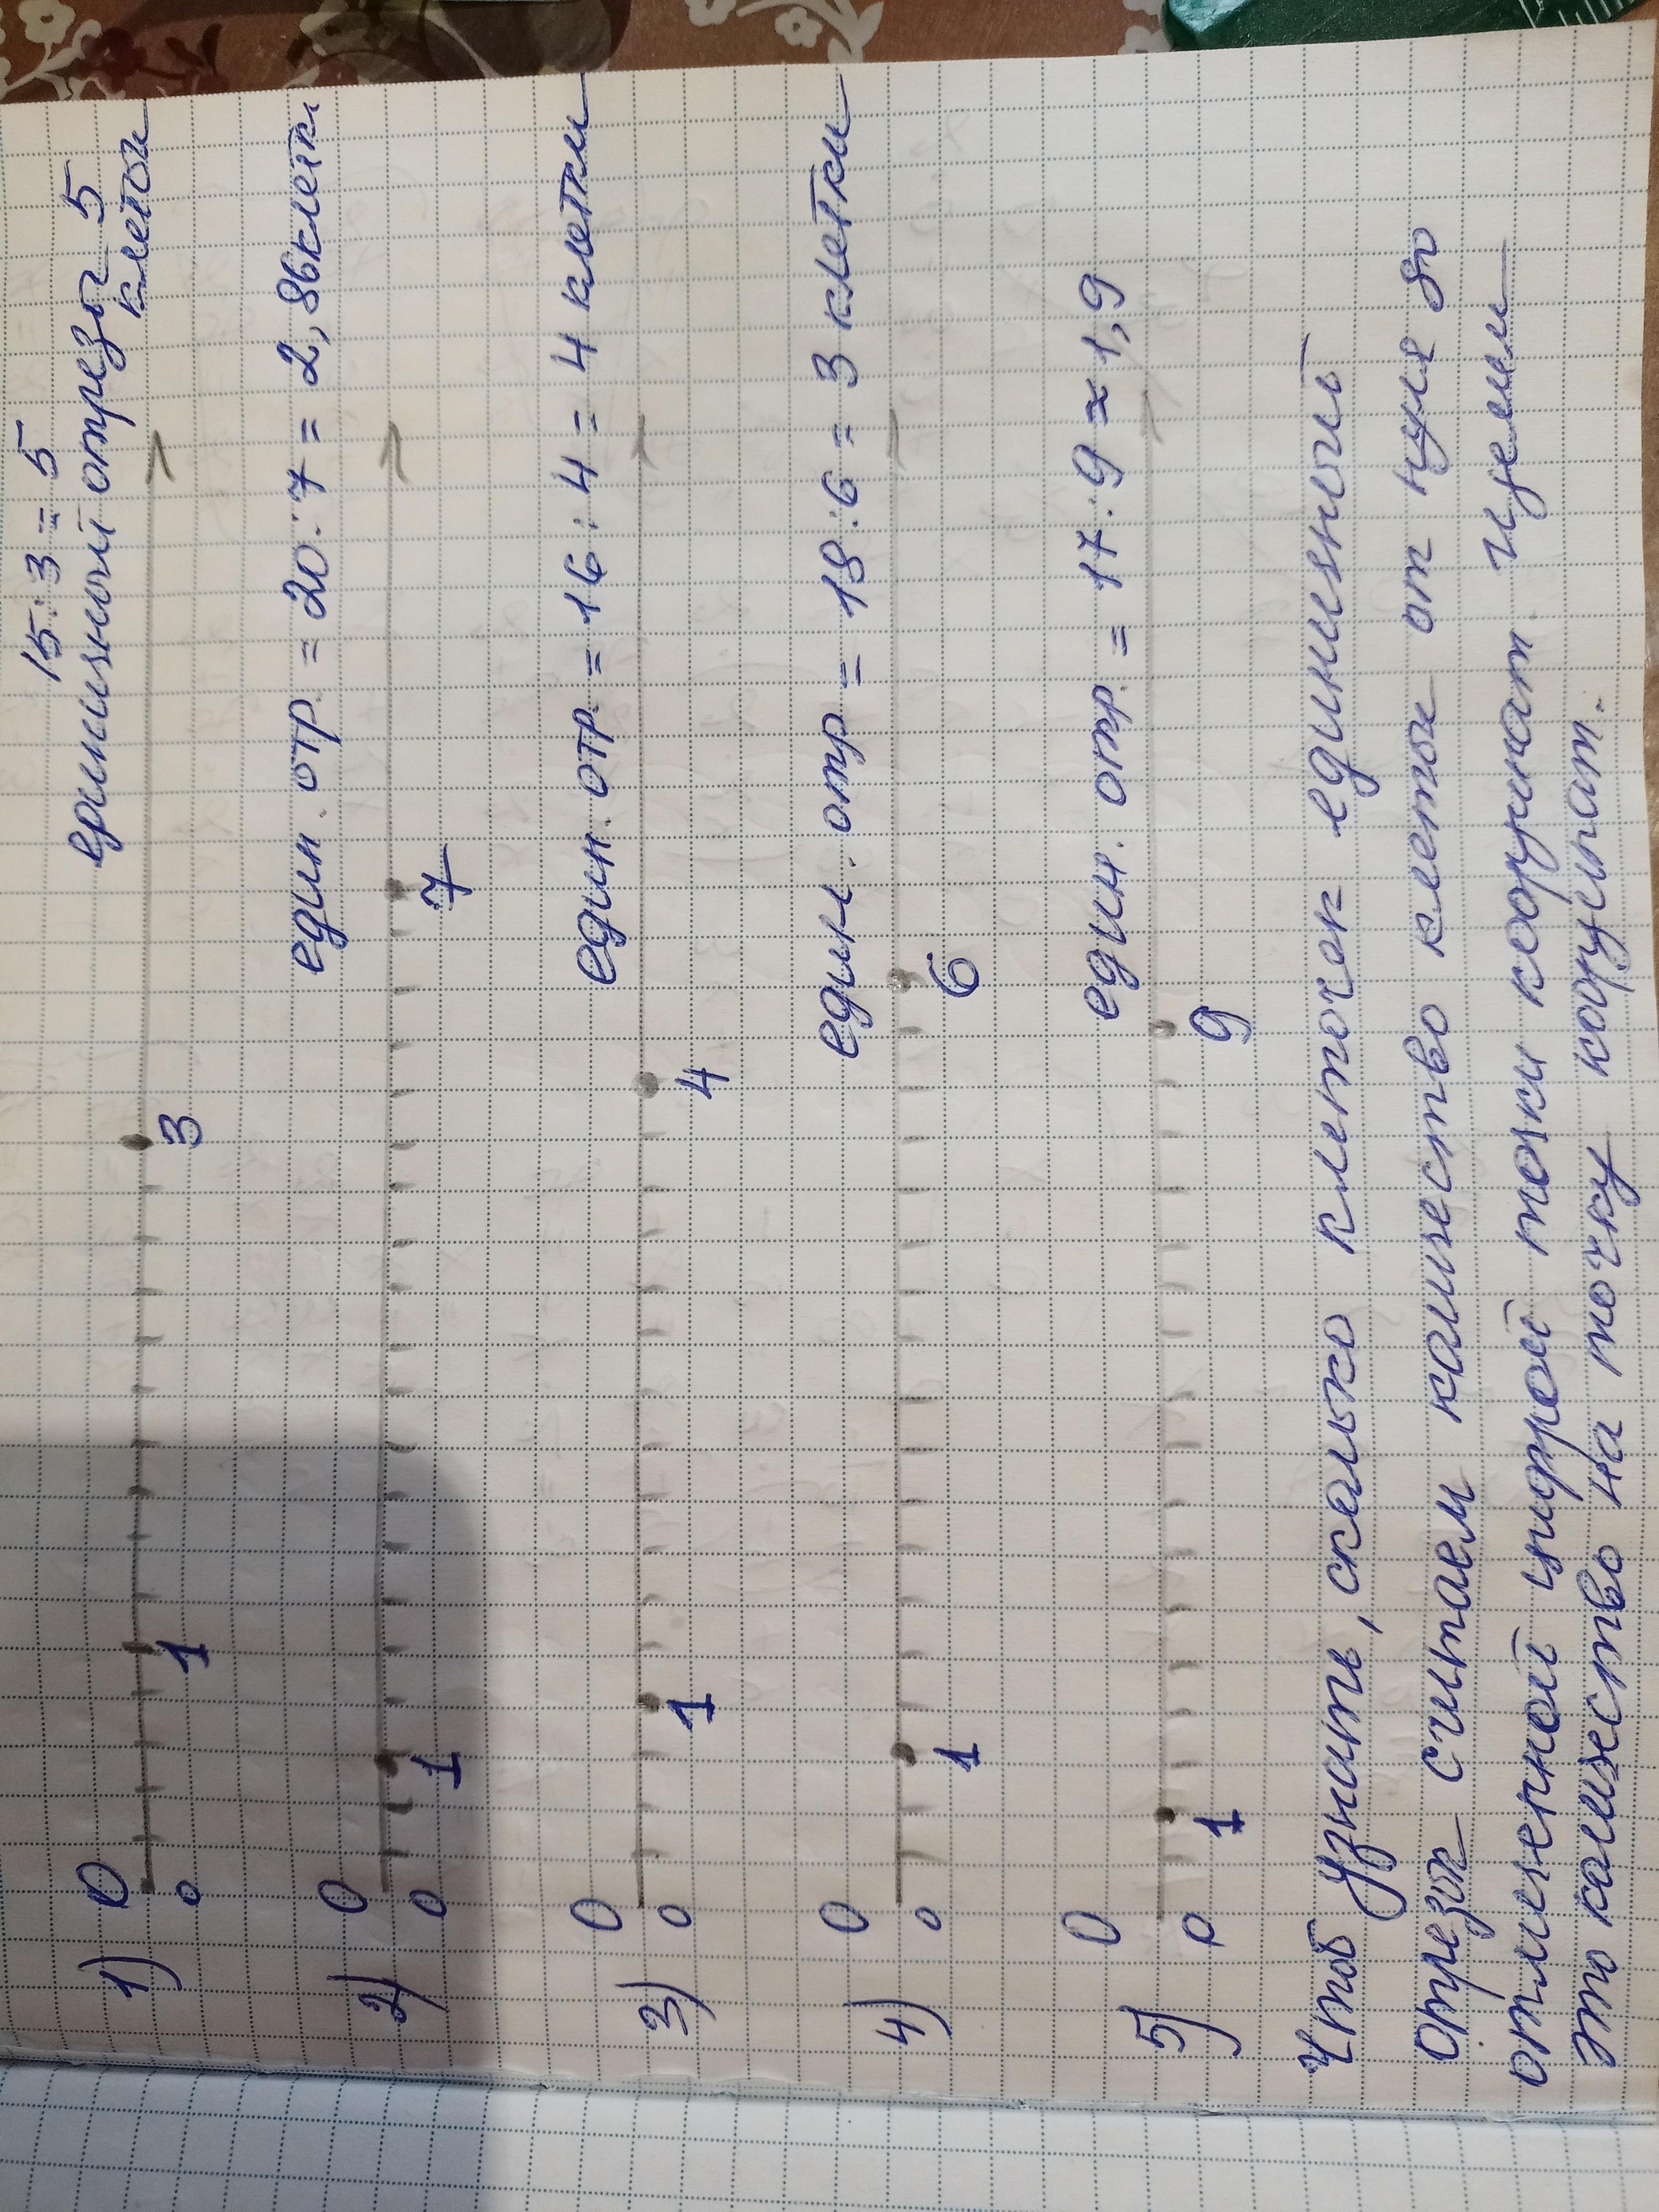 15 : 3 = 5
1) 0 единичный отрезок 5
клеток
0 1 3
един. отр. = 20 : 7 = 2,86 клетки
2) 0
0 1 7
един. отр. = 16 : 4 = 4 клетки
3) 0
0 1 4
един. отр = 18 : 6 = 3 клетки
4) 0
0 1 6
един. отр. = 17 : 9 ≈ 1,9
5) 0
0 1 9
Чтоб узнать, сколько клеточек единичный
отрезок считаем количество клеток от нуля до
отмеченной цифрой точки координат и делим
это количество на точку координат.